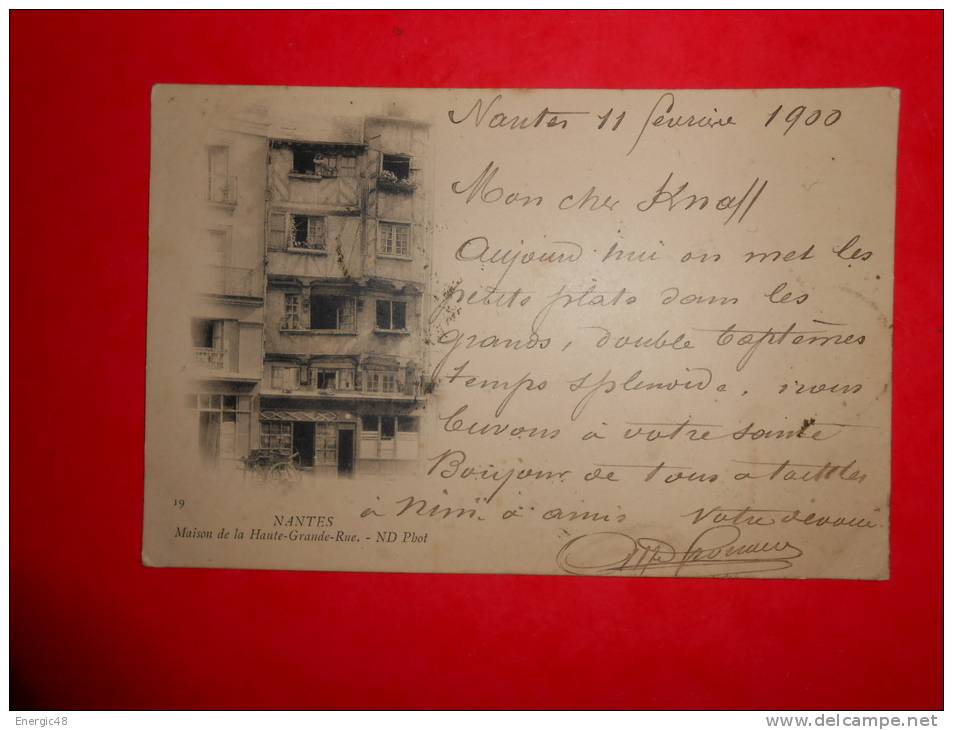 Nantes 11 fevrier 1900
Mon cher Knoff
Aujourd hui on met les
petits plats dans les
grands, double Baptêmes
temps splendide, nous
buvons à votre santé
Bonjour de tous a
à Nimi à amis Votre dévoué
19
NANTES
Maison de la Haute-Grande-Rue. - ND Phot
Energic48
www.delcampe.net